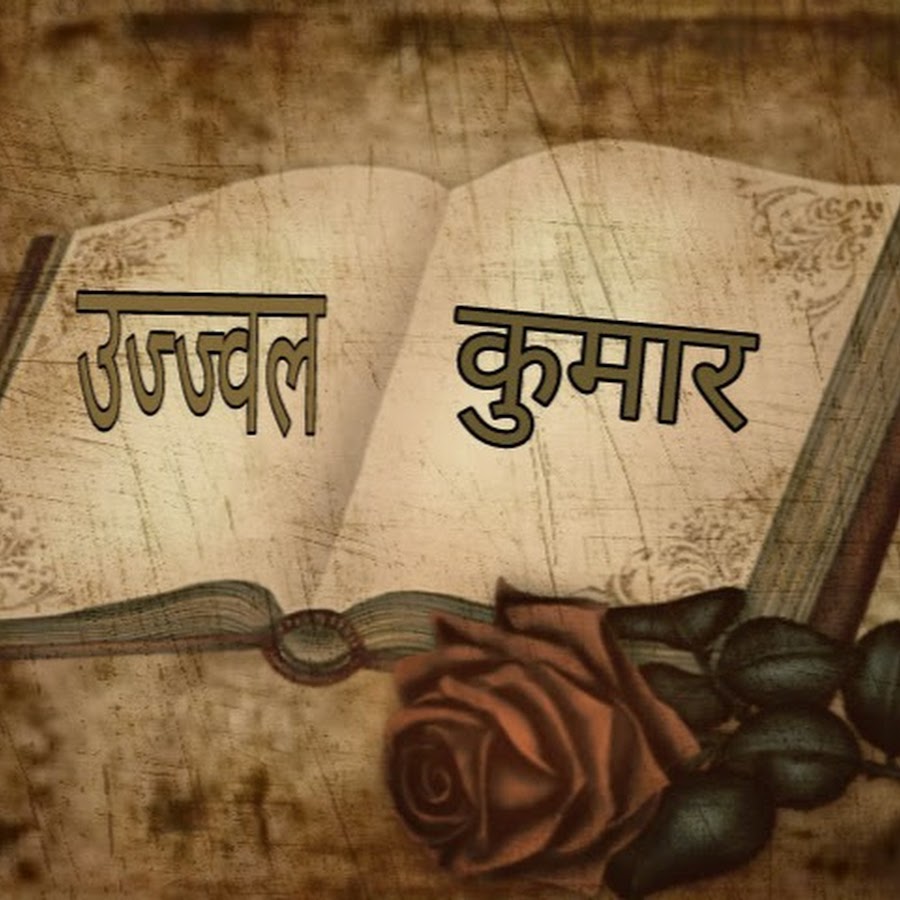 उज्ज्वल कुमार